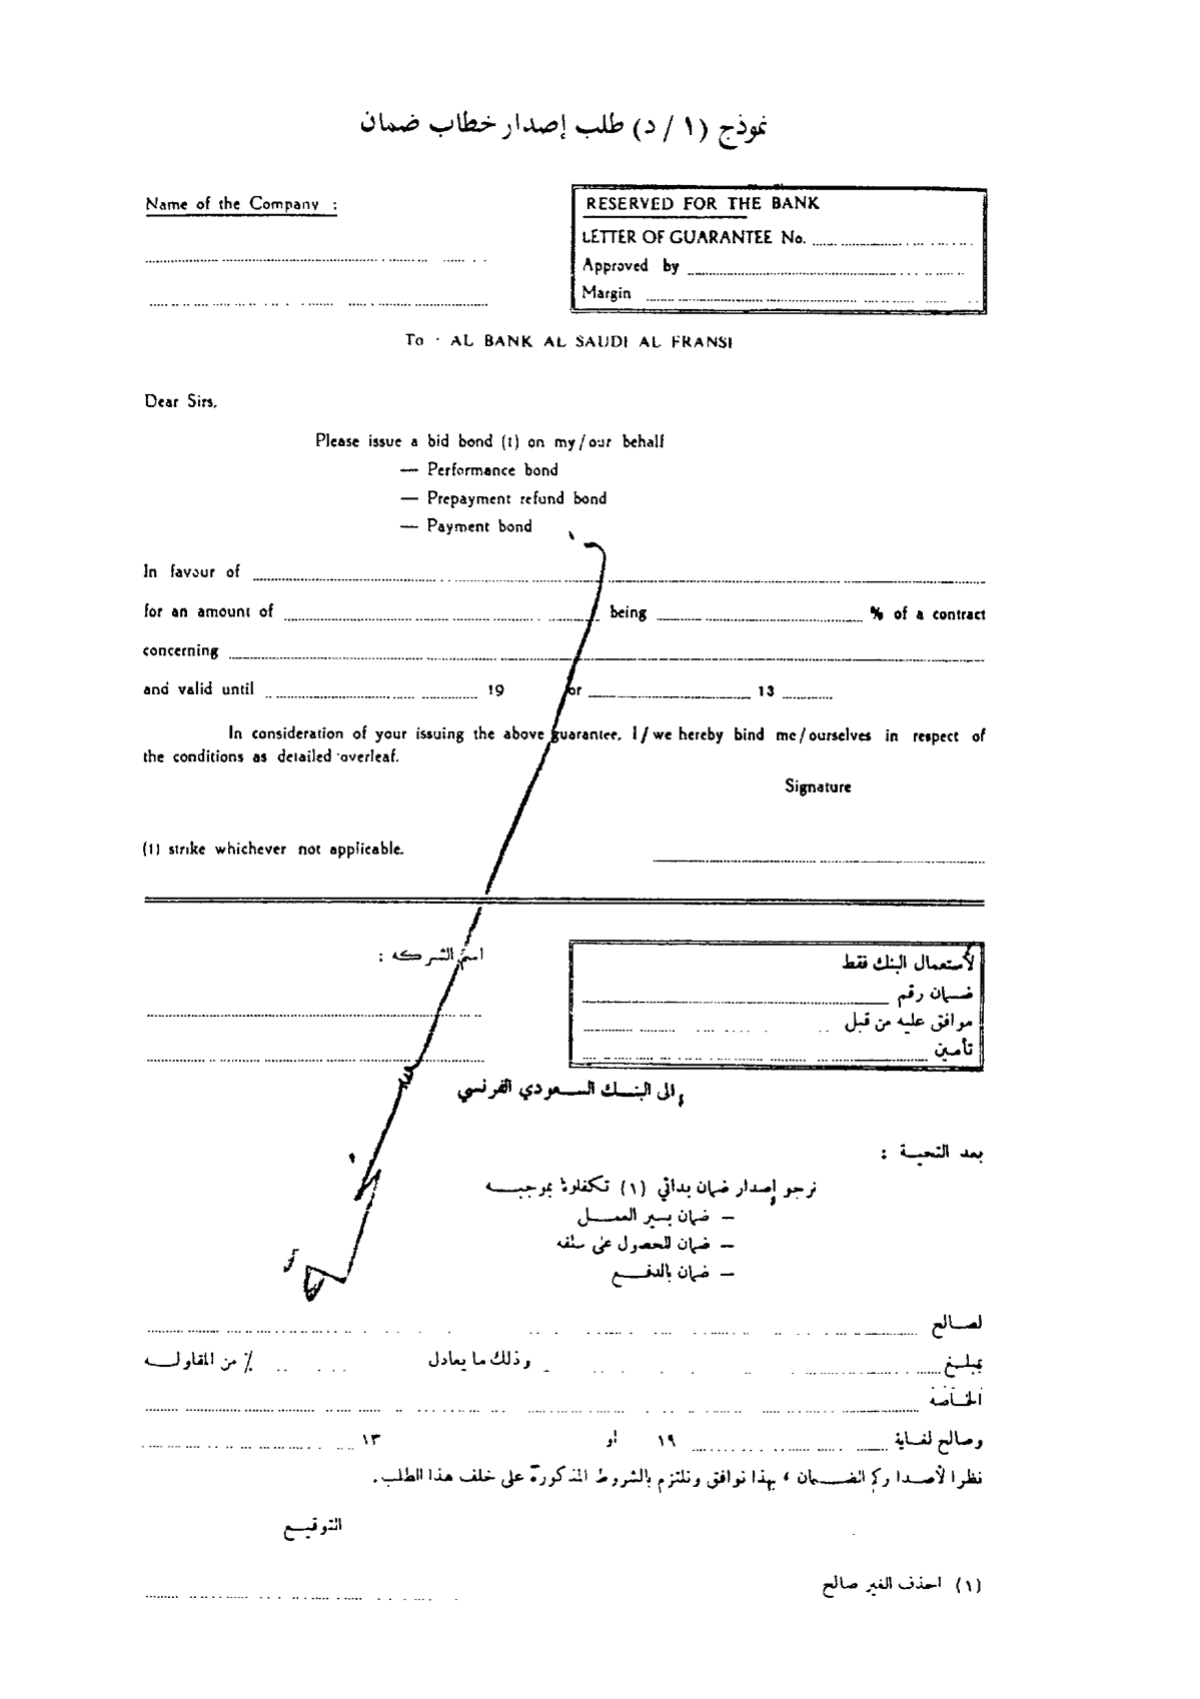 نموذج (١ / د) طلب إصدار خطاب ضمان
Name of the Company :
RESERVED FOR THE BANK
LETTER OF GUARANTEE No.
Approved by
Margin
To · AL BANK AL SAUDI AL FRANSI
Dear Sirs,
Please issue a bid bond (1) on my/our behalf
— Performance bond
— Prepayment refund bond
— Payment bond
In favour of
for an amount of being % of a contract
concerning
and valid until 19 or 13
In consideration of your issuing the above guarantee, I/we hereby bind me/ourselves in respect of
the conditions as detailed overleaf.
Signature
(1) strike whichever not applicable.
اسم الشركه :
لأستعمال البنك فقط
ضمان رقم
موافق عليه من قبل
تأمين
إلى البنك السعودي الفرنسي
بعد التحية :
نرجو إصدار ضمان بدائي (١) تكفلونا بموجبه
– ضمان بسير العمل
– ضمان للحصول على سلفه
– ضمان بالدفع
لصالح
بمبلغ وذلك ما يعادل ٪ من المقاوله
الخاصة
وصالح لغاية ١٩ او ١٣
نظرا لأصداركم الضمان ، بهذا نوافق ونلتزم بالشروط المذكورة على خلف هذا الطلب .
التوقيع
(١) احذف الغير صالح